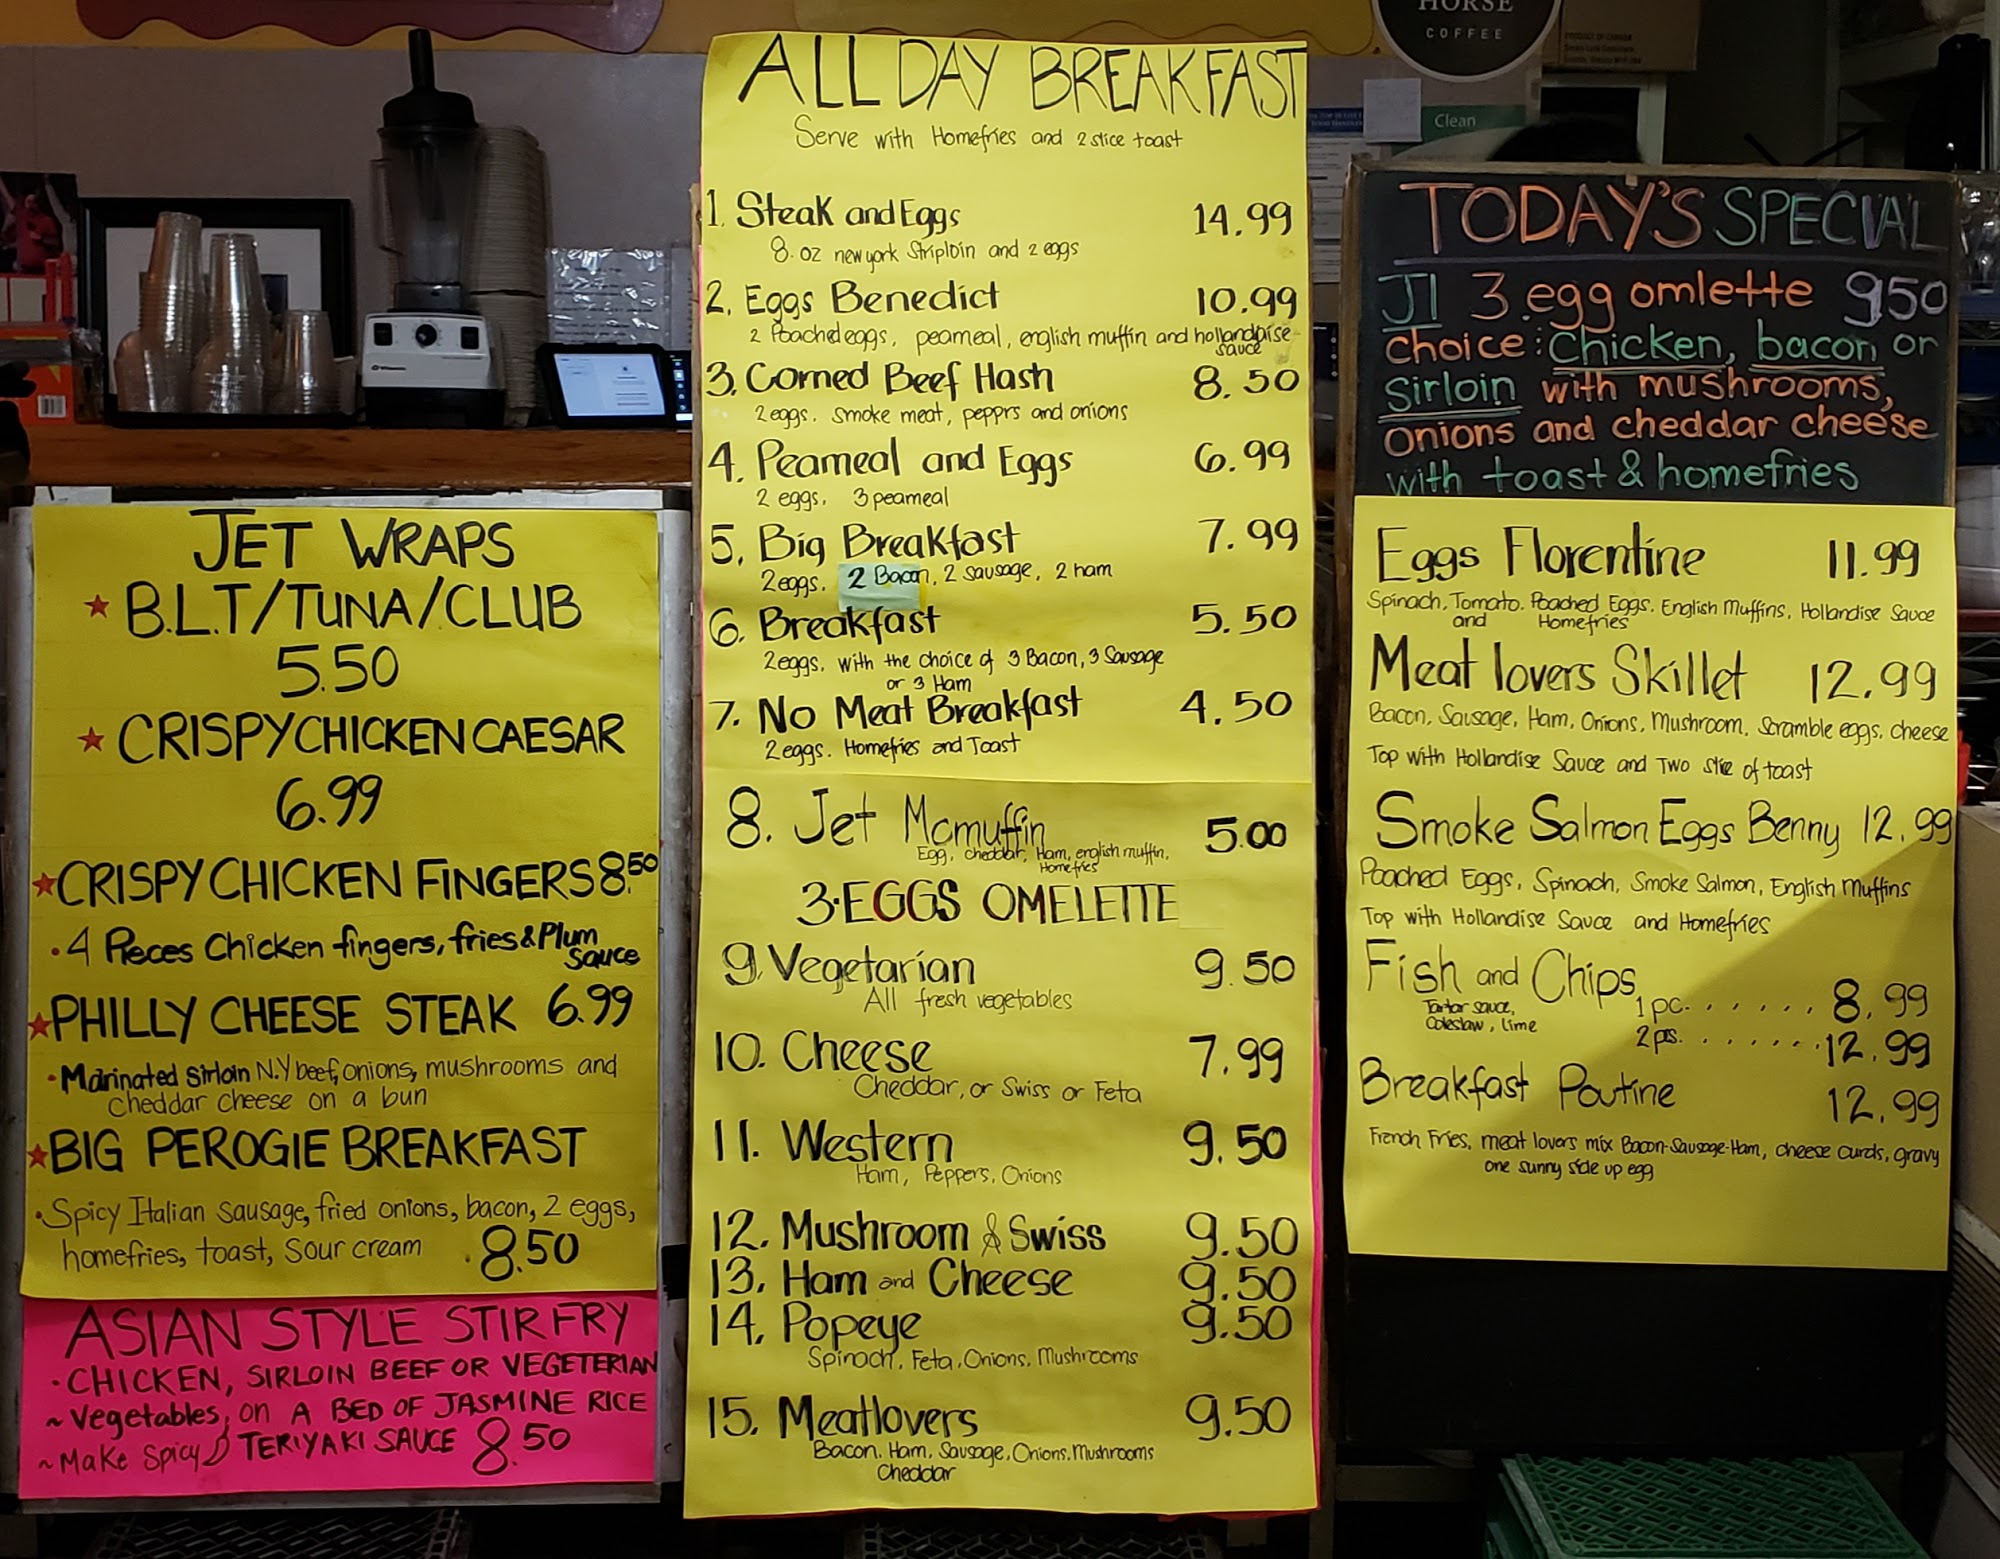 HORSE
COFFEE
Clean
JET WRAPS
B.L.T/TUNA/CLUB
5.50
CRISPY CHICKEN CAESAR
6.99
CRISPY CHICKEN FINGERS 8.50
• 4 Pieces Chicken fingers, fries & Plum
Sauce
PHILLY CHEESE STEAK 6.99
• Marinated sirloin N.Y beef, onions, mushrooms and
cheddar cheese on a bun
BIG PEROGIE BREAKFAST
• Spicy Italian sausage, fried onions, bacon, 2 eggs,
homefries, toast, sour cream . 8.50
ASIAN STYLE STIR FRY
• CHICKEN, SIRLOIN BEEF OR VEGETERIAN
~ Vegetables, on A BED OF JASMINE RICE
~ Make Spicy TERIYAKI SAUCE 8.50
ALL DAY BREAKFAST
Serve with Homefries and 2 slice toast
1. Steak and Eggs 14.99
8. oz new york Striploin and 2 eggs
2. Eggs Benedict 10.99
2 Poached eggs, peameal, english muffin and hollandaise
sauce
3. Corned Beef Hash 8.50
2 eggs. smoke meat, pepprs and onions
4. Peameal and Eggs 6.99
2 eggs. 3 peameal
5. Big Breakfast 7.99
2 eggs. 2 Bacon, 2 sausage, 2 ham
6. Breakfast 5.50
2 eggs. with the choice of 3 Bacon, 3 Sausage
or 3 Ham
7. No Meat Breakfast 4.50
2 eggs. Homefries and Toast
8. Jet Mcmuffin 5.00
Egg, cheddar, Ham, english muffin,
Homefries
3-EGGS OMELETTE
9. Vegetarian 9.50
All fresh vegetables
10. Cheese 7.99
Cheddar, or Swiss or Feta
11. Western 9.50
Ham, Peppers, Onions
12. Mushroom & Swiss 9.50
13. Ham and Cheese 9.50
14. Popeye 9.50
Spinach, Feta, Onions, Mushrooms
15. Meatlovers 9.50
Bacon, Ham, Sausage, Onions, Mushrooms
Cheddar
TODAY'S SPECIAL
J1 3 egg omlette 9.50
choice: Chicken, bacon or
Sirloin with mushrooms,
onions and cheddar cheese
with toast & homefries
Eggs Florentine 11.99
Spinach, Tomato. Poached Eggs. English Muffins, Hollandise Sauce
and Homefries
Meat lovers Skillet 12.99
Bacon, Sausage, Ham, Onions, Mushroom, Scramble eggs, cheese
Top with Hollandise Sauce and Two slice of toast
Smoke Salmon Eggs Benny 12.99
Poached Eggs, Spinach, Smoke Salmon, English Muffins
Top with Hollandise Sauce and Homefries
Fish and Chips
Tartar sauce,
Coleslaw, lime
1 pc. . . . . . . 8.99
2 pcs. . . . . . . . 12.99
Breakfast Poutine 12.99
French Fries, meat lovers mix Bacon-Sausage-Ham, cheese curds, gravy
one sunny side up egg